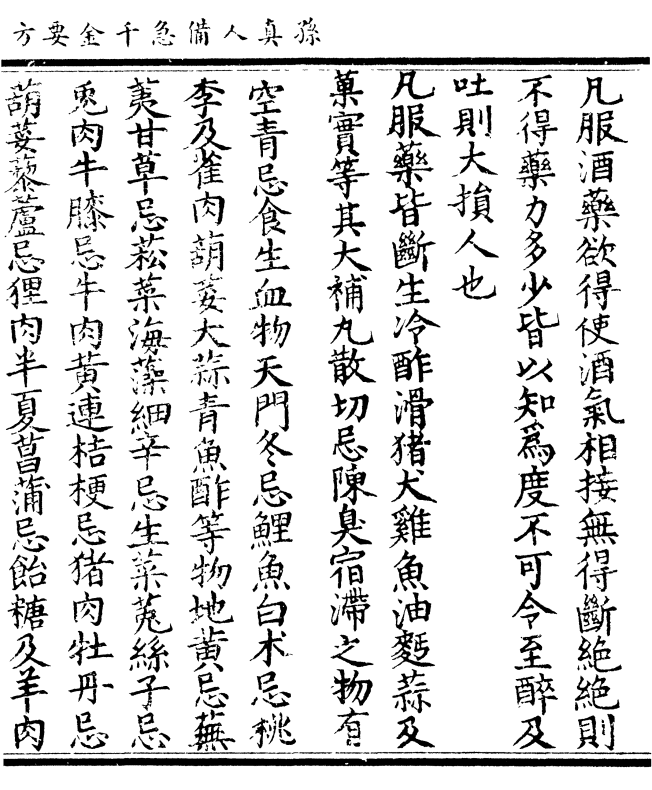 孫真人備急千金要方
凡服酒藥欲得使酒氣相接無得斷絶絶則
不得藥力多少皆以知爲度不可令至醉及
吐則大損人也
凡服藥皆斷生冷酢滑猪犬雞魚油麪蒜及
菓實等其大補丸散切忌陳臭宿滯之物有
空青忌食生血物天門冬忌鯉魚白术忌桃
李及雀肉葫荽大蒜青魚酢等物地黄忌蕪
荑甘草忌菘菜海藻細辛忌生菜菟絲子忌
兎肉牛膝忌牛肉黄連桔梗忌猪肉牡丹忌
葫荽藜蘆忌狸肉半夏菖蒲忌飴糖及羊肉